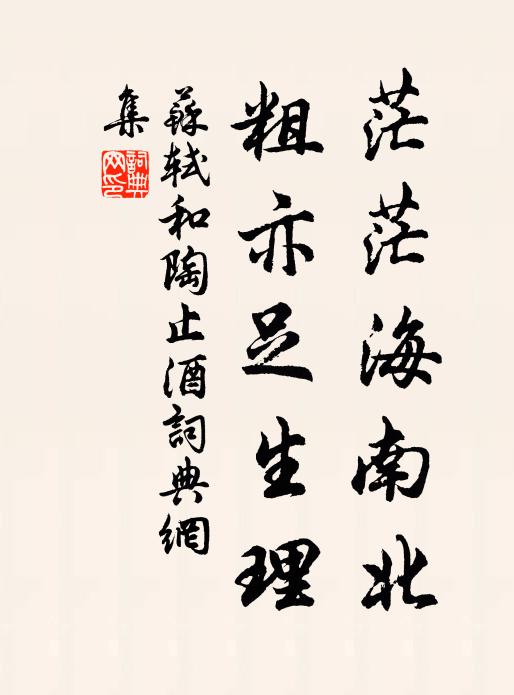 茫茫海南北
粗亦足生理
蘇軾和陶止酒詞典網
集
詞典
网印